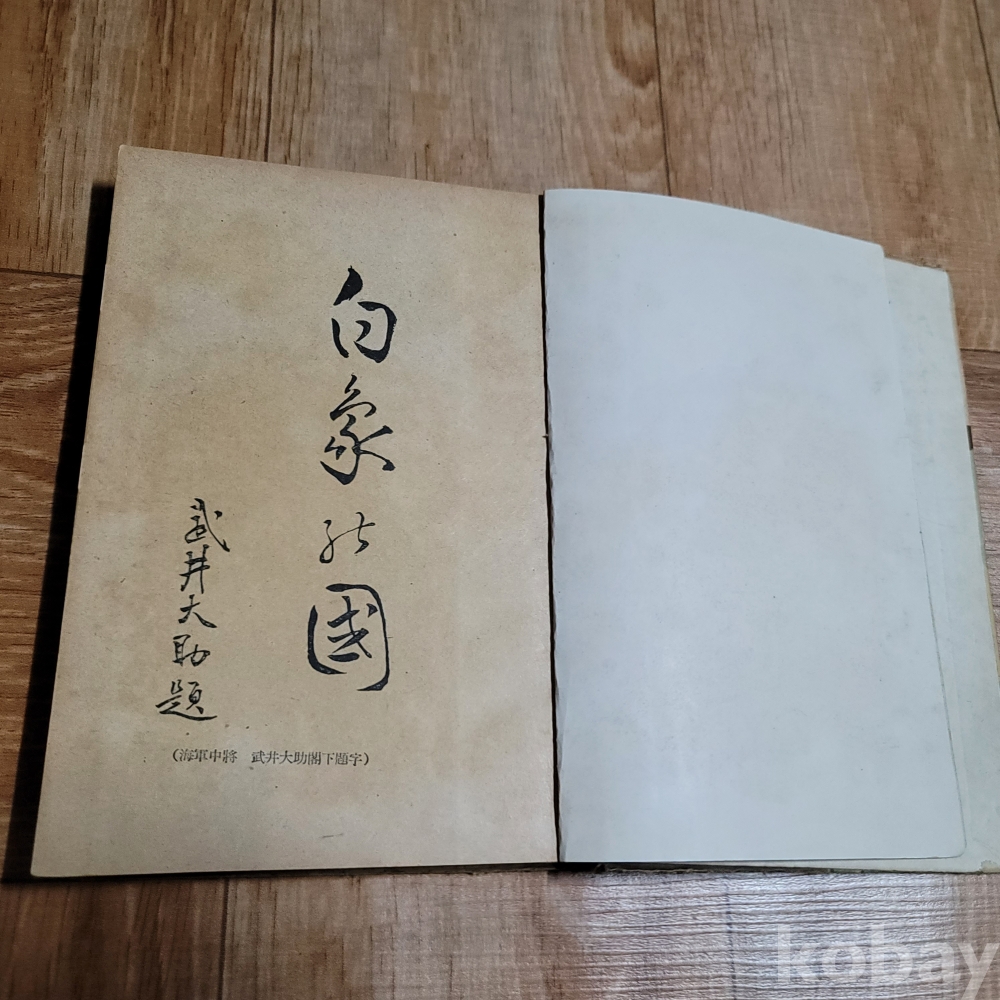 白象の國
武井大助題
（海軍中將　武井大助閣下題字）
kobay